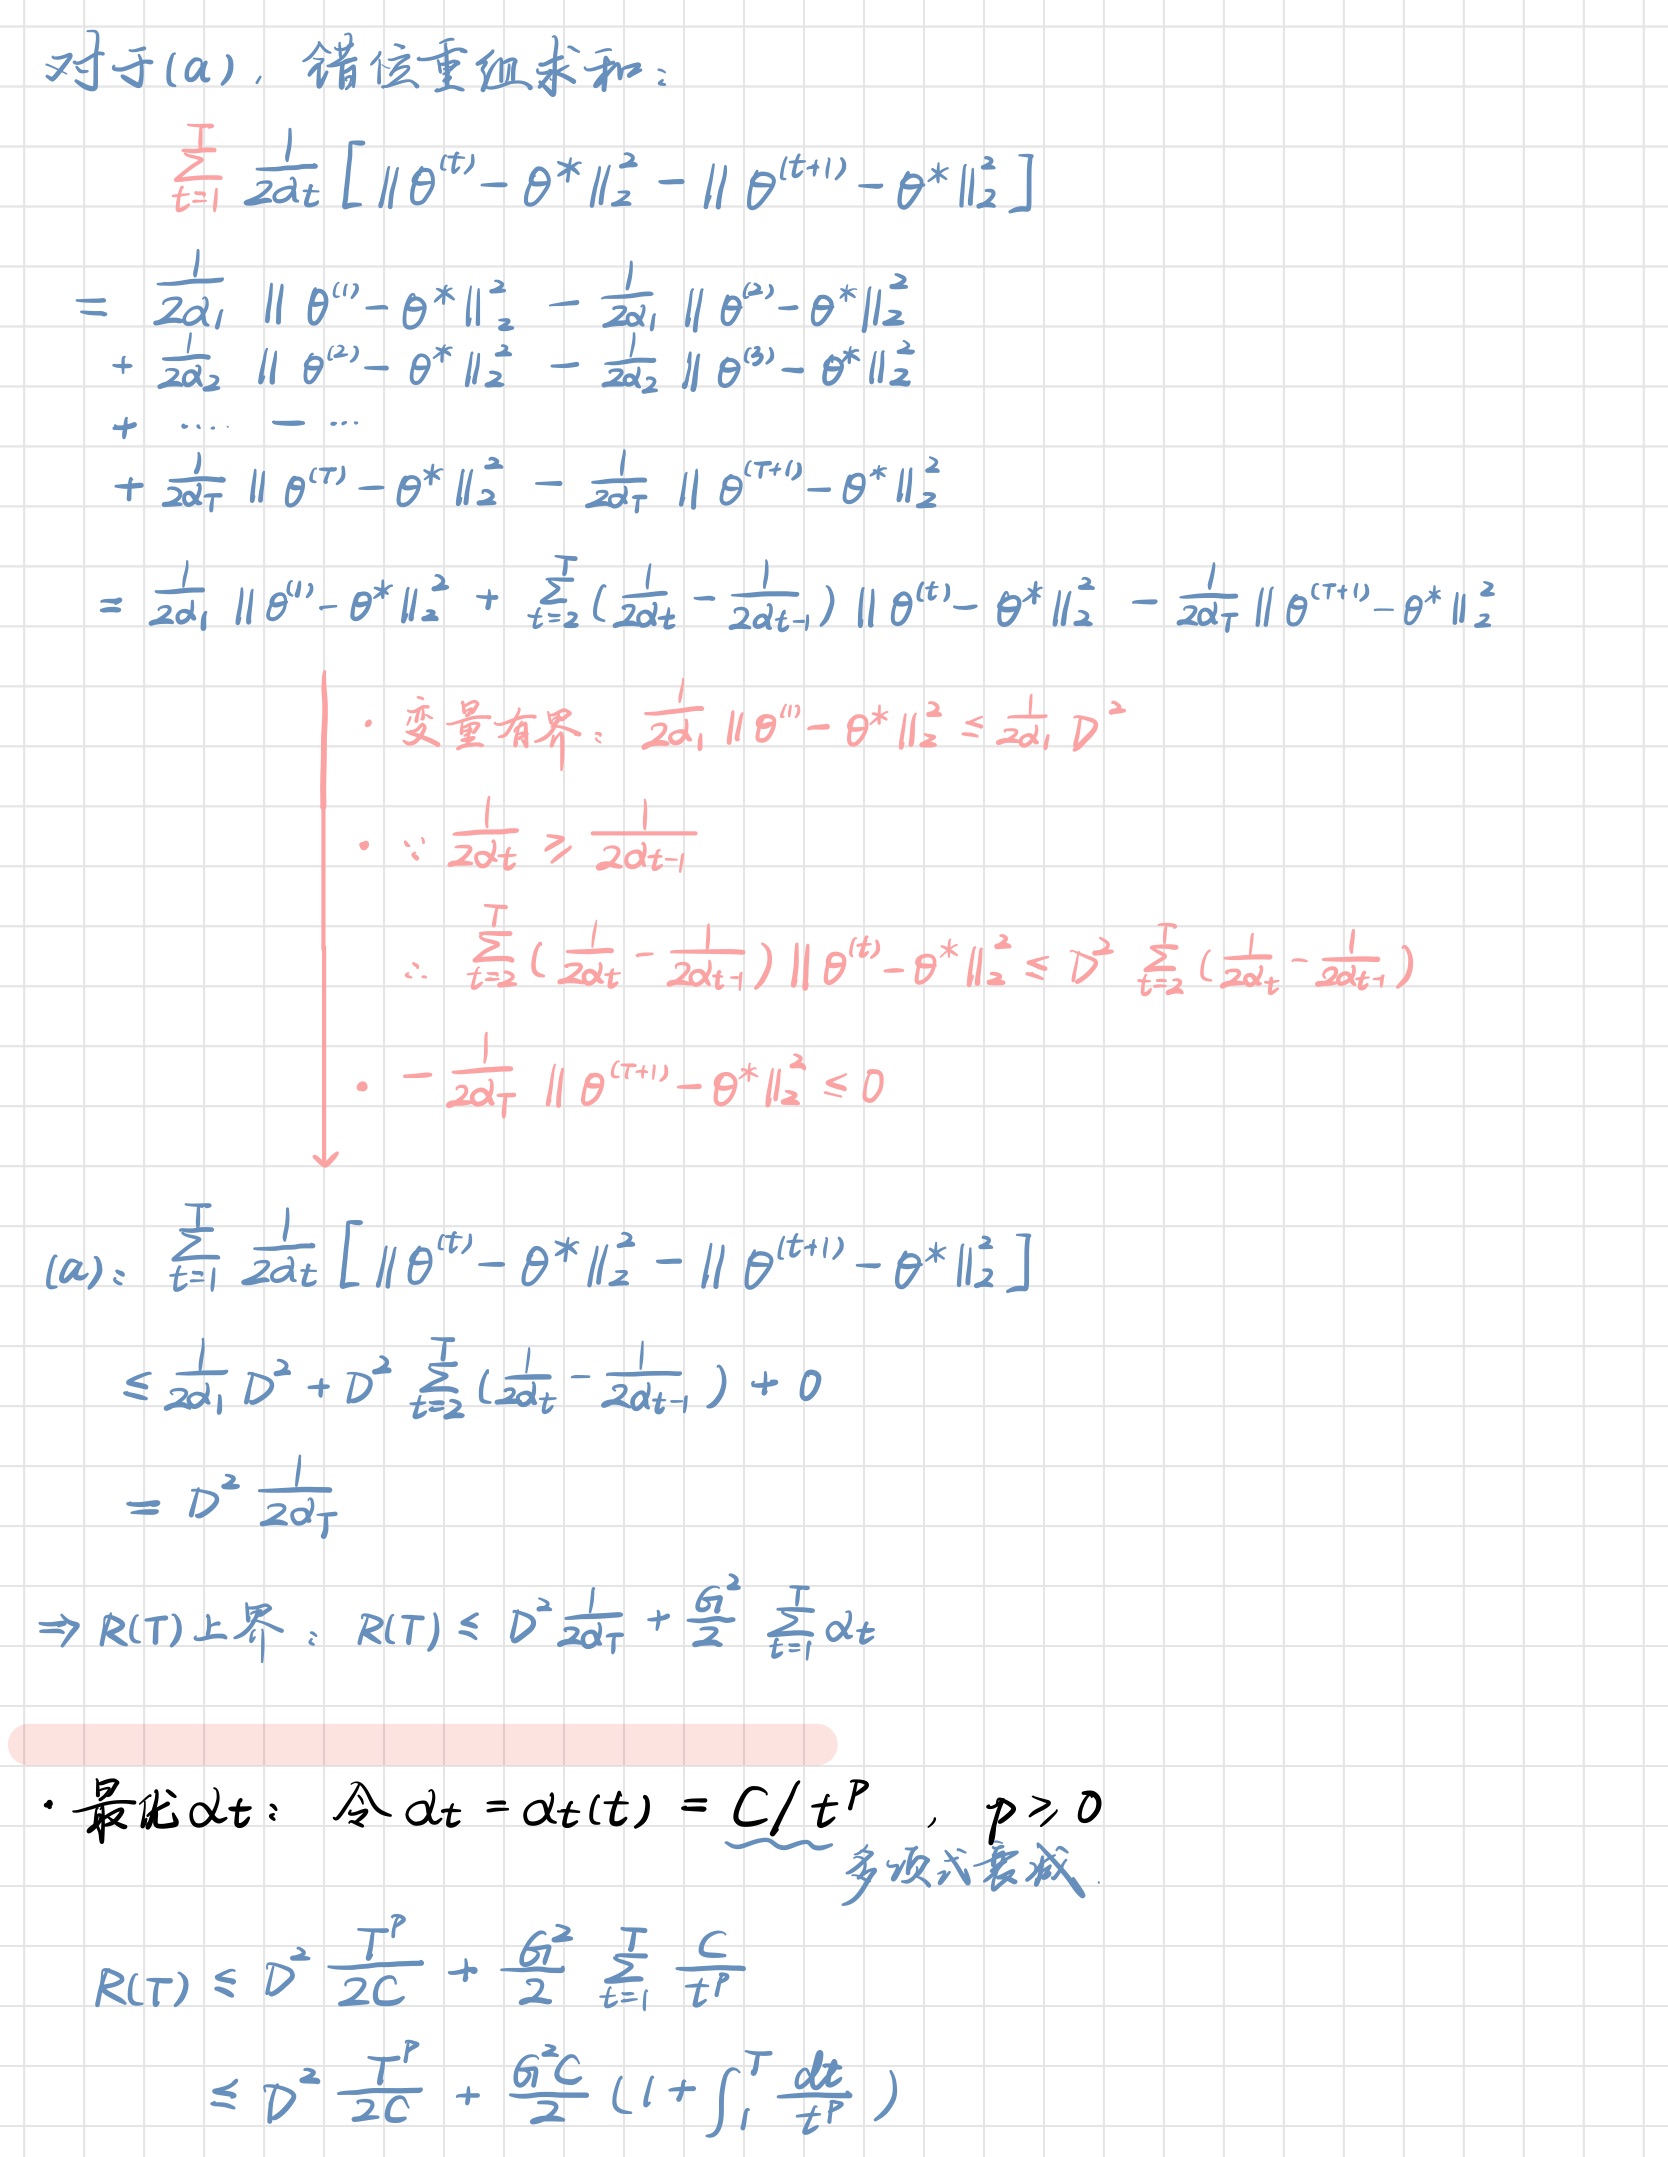 对于(a)，错位重组求和：
$\sum_{t=1}^{T} \frac{1}{2\alpha_t} [ \| \theta^{(t)} - \theta^* \|_2^2 - \| \theta^{(t+1)} - \theta^* \|_2^2 ]$
$= \frac{1}{2\alpha_1} \| \theta^{(1)} - \theta^* \|_2^2 - \frac{1}{2\alpha_1} \| \theta^{(2)} - \theta^* \|_2^2$
$+ \frac{1}{2\alpha_2} \| \theta^{(2)} - \theta^* \|_2^2 - \frac{1}{2\alpha_2} \| \theta^{(3)} - \theta^* \|_2^2$
$+ \cdots - \cdots$
$+ \frac{1}{2\alpha_T} \| \theta^{(T)} - \theta^* \|_2^2 - \frac{1}{2\alpha_T} \| \theta^{(T+1)} - \theta^* \|_2^2$
$= \frac{1}{2\alpha_1} \| \theta^{(1)} - \theta^* \|_2^2 + \sum_{t=2}^{T} ( \frac{1}{2\alpha_t} - \frac{1}{2\alpha_{t-1}} ) \| \theta^{(t)} - \theta^* \|_2^2 - \frac{1}{2\alpha_T} \| \theta^{(T+1)} - \theta^* \|_2^2$
· 变量有界：$\frac{1}{2\alpha_1} \| \theta^{(1)} - \theta^* \|_2^2 \le \frac{1}{2\alpha_1} D^2$
· ∵ $\frac{1}{2\alpha_t} \geqslant \frac{1}{2\alpha_{t-1}}$
∴ $\sum_{t=2}^{T} ( \frac{1}{2\alpha_t} - \frac{1}{2\alpha_{t-1}} ) \| \theta^{(t)} - \theta^* \|_2^2 \le D^2 \sum_{t=2}^{T} ( \frac{1}{2\alpha_t} - \frac{1}{2\alpha_{t-1}} )$
· $- \frac{1}{2\alpha_T} \| \theta^{(T+1)} - \theta^* \|_2^2 \le 0$
(a)：$\sum_{t=1}^{T} \frac{1}{2\alpha_t} [ \| \theta^{(t)} - \theta^* \|_2^2 - \| \theta^{(t+1)} - \theta^* \|_2^2 ]$
$\le \frac{1}{2\alpha_1} D^2 + D^2 \sum_{t=2}^{T} ( \frac{1}{2\alpha_t} - \frac{1}{2\alpha_{t-1}} ) + 0$
$= D^2 \frac{1}{2\alpha_T}$
⇒ R(T)上界：$R(T) \le D^2 \frac{1}{2\alpha_T} + \frac{G^2}{2} \sum_{t=1}^{T} \alpha_t$
· 最优$\alpha_t$：令 $\alpha_t = \alpha_t(t) = C/t^p$，$p \geqslant 0$
多项式衰减.
$R(T) \le D^2 \frac{T^p}{2C} + \frac{G^2}{2} \sum_{t=1}^{T} \frac{C}{t^p}$
$\le D^2 \frac{T^p}{2C} + \frac{G^2 C}{2} ( 1 + \int_1^T \frac{dt}{t^p} )$